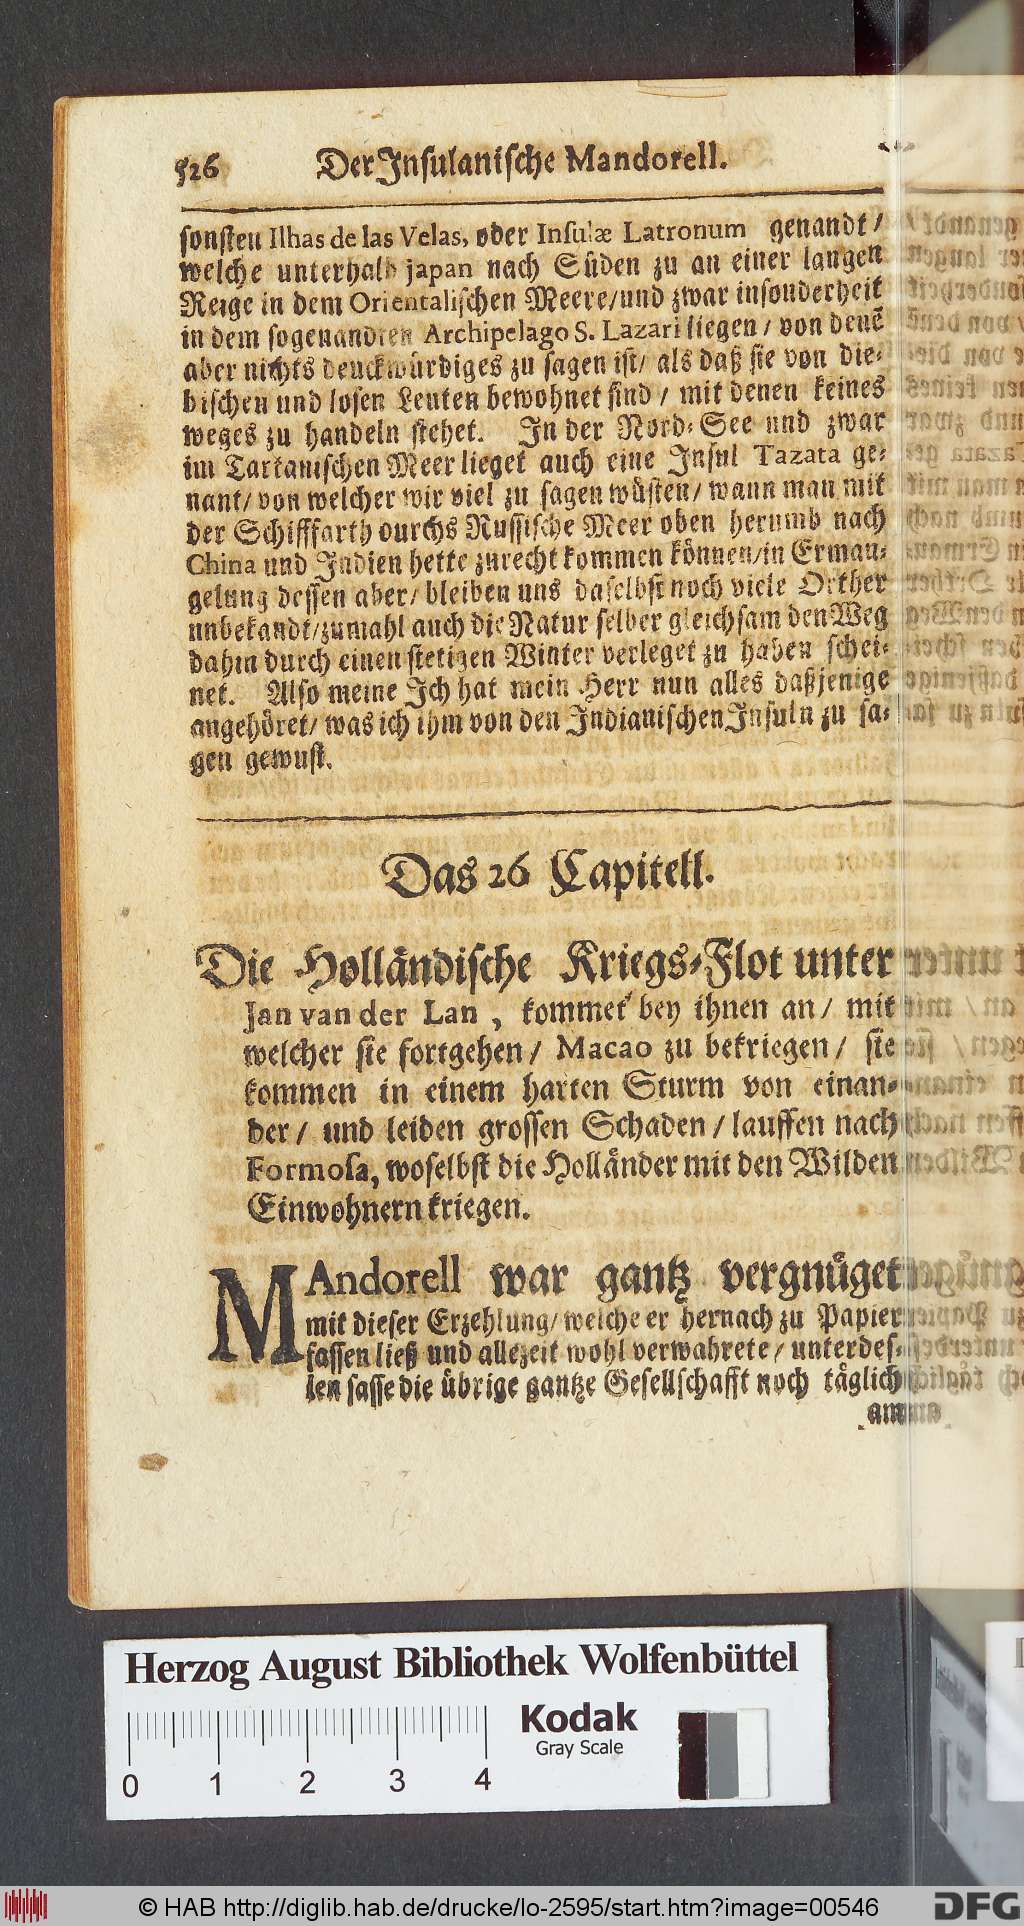 526 Der Insulanische Mandorell.
sonsten Ilhas de las Velas, oder Insulæ Latronum genandt /
welche unterhalb Japan nach Süden zu an einer langen
Reige in dem Orientalischen Meere / und zwar insonderheit
in dem sogenandten Archipelago S. Lazari liegen / von denē
aber nichts denckwürdiges zu sagen ist / als daß sie von die-
bischen und losen Leuten bewohnet sind / mit denen keines
weges zu handeln stehet. In der Nord-See und zwar
im Tartarischen Meer lieget auch eine Insul Tazata ge-
nant / von welcher wir viel zu sagen wüsten / wann man mit
der Schifffarth durchs Russische Meer oben herumb nach
China und Indien hette zurecht kommen können / in Erman-
gelung dessen aber / bleiben uns daselbst noch viele Örther
unbekandt / zumahl auch die Natur selber gleichsam den Weg
dahin durch einen stetigen Winter verleget zu haben schei-
net. Also meine Ich hat mein Herr nun alles daßjenige
angehöret / was ich ihm von den Indianischen Insuln zu sa-
gen gewust.
Das 26 Capitell.
Die Holländische Kriegs-Flot unter
Jan van der Lan, kommet bey ihnen an / mit
welcher sie fortgehen / Macao zu bekriegen / sie
kommen in einem harten Sturm von einan-
der / und leiden grossen Schaden / lauffen nach
Formosa, woselbst die Holländer mit den Wilden
Einwohnern kriegen.
MAndorell war gantz vergnüget
mit dieser Erzehlung / welche er hernach zu Papier
fassen ließ und allezeit wohl verwahrete / unterdes-
sen sasse die übrige gantze Gesellschafft noch täglich
Herzog August Bibliothek Wolfenbüttel
Kodak
Gray Scale
0 1 2 3 4
© HAB http://diglib.hab.de/drucke/lo-2595/start.htm?image=00546
DFG